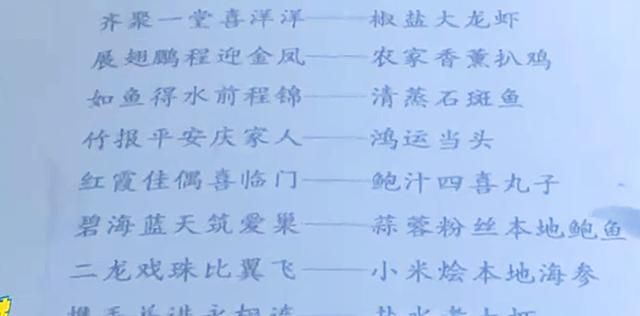 齐聚一堂喜洋洋——椒盐大龙虾
展翅鹏程迎金凤——农家香薰扒鸡
如鱼得水前程锦——清蒸石斑鱼
竹报平安庆家人——鸿运当头
红霞佳偶喜临门——鲍汁四喜丸子
碧海蓝天筑爱巢——蒜蓉粉丝本地鲍鱼
二龙戏珠比翼飞——小米烩本地海参